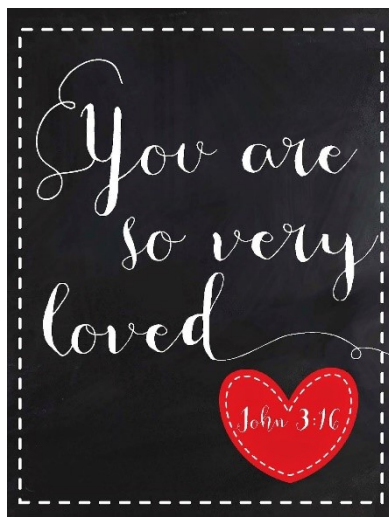 You are
so very
loved
John 3:16